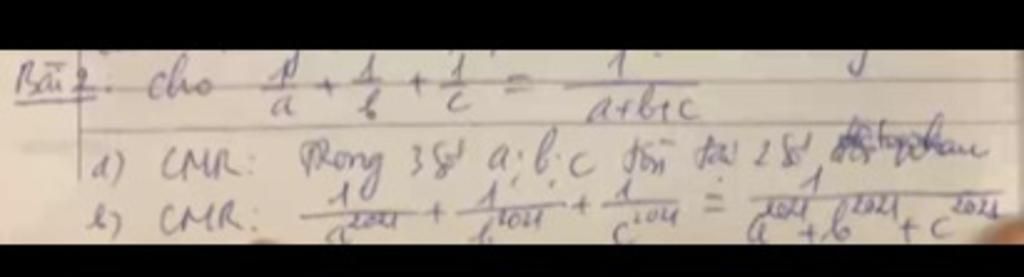 Bài 2: Cho 1/a + 1/b + 1/c = 1/(a+b+c)
a) CMR: Trong 3 số a; b; c tồn tại 2 số đối nhau
b) CMR: 1/a^2021 + 1/b^2021 + 1/c^2021 = 1/(a^2021 + b^2021 + c^2021)